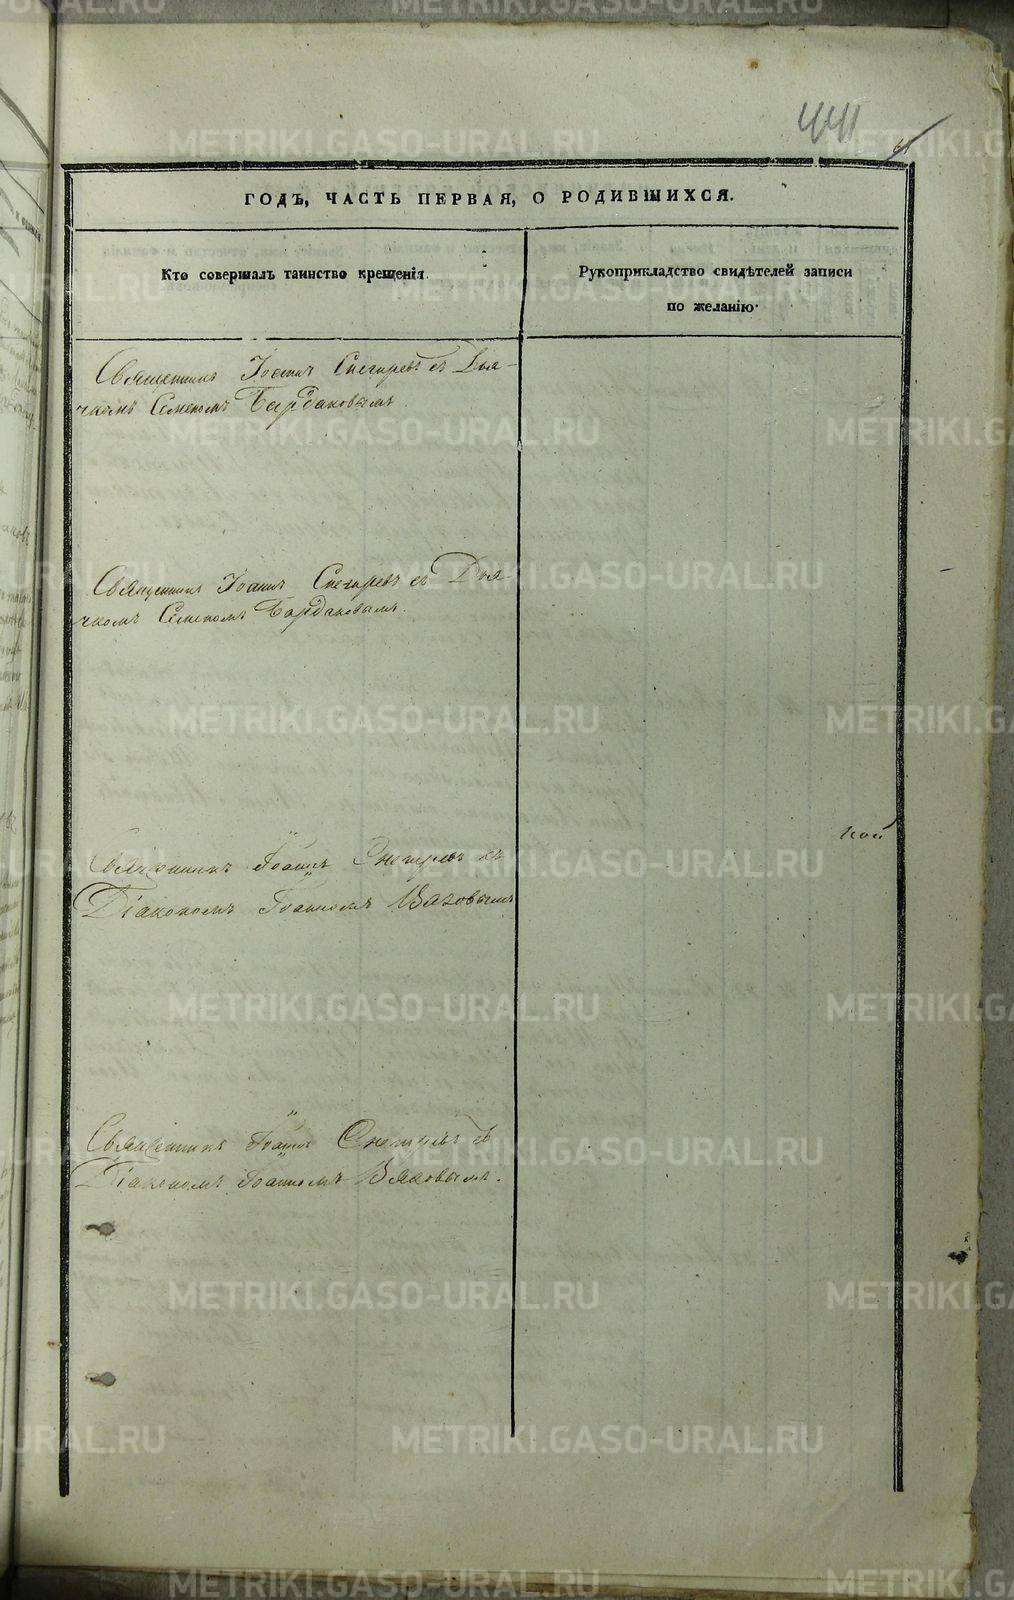 441
ГОДЪ, ЧАСТЬ ПЕРВАЯ, О РОДИВШИХСЯ.
Кто совершалъ таинство крещенія.
Рукоприкладство свидѣтелей записи
по желанію.
Священникъ Іоаннъ Снегиревъ съ Дья-
чкомъ Семеномъ Бардаковымъ.
Священникъ Іоаннъ Снегиревъ съ Дья-
чкомъ Семеномъ Бардаковымъ.
кой
Священникъ Іоаннъ Снегиревъ съ
Діакономъ Іоанномъ Вяховымъ
Священникъ Іоаннъ Снегиревъ съ
Діакономъ Іоанномъ Вяховымъ.
METRIKI.GASO-URAL.RU